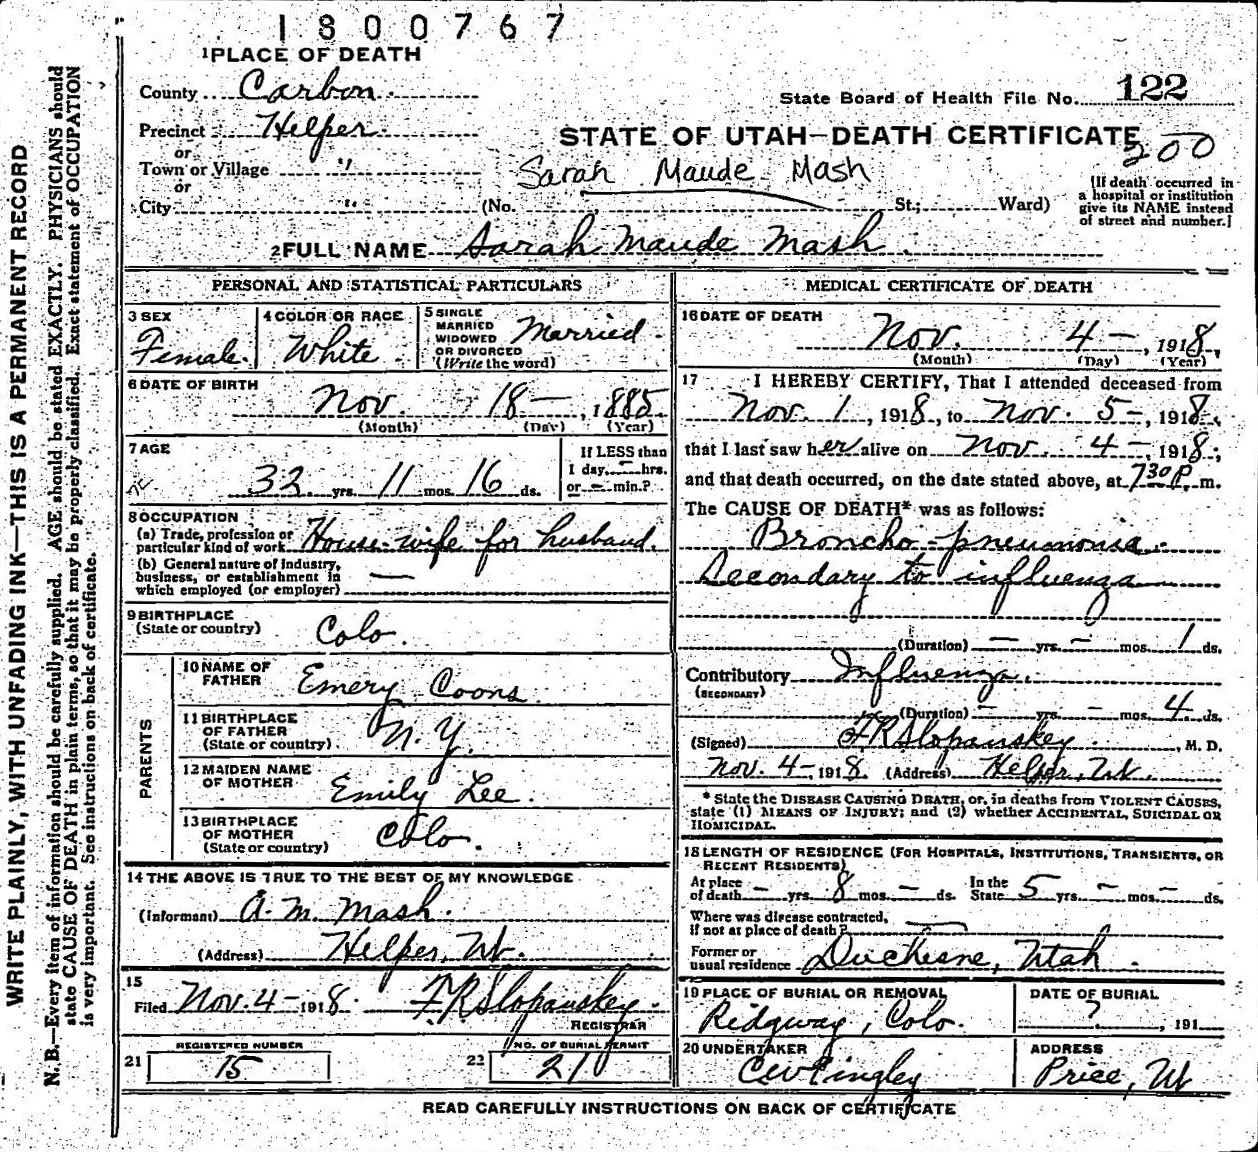 1800767
1 PLACE OF DEATH
County Carbon.
Precinct Helper
or
Town or Village "
or
City "
State Board of Health File No. 122
STATE OF UTAH—DEATH CERTIFICATE
200
Sarah Maude Mash
(No. St.; Ward)
[If death occurred in
a hospital or institution
give its NAME instead
of street and number.]
2 FULL NAME Sarah Maude Mash.
PERSONAL AND STATISTICAL PARTICULARS
3 SEX
Female.
4 COLOR OR RACE
White
5 SINGLE
MARRIED
WIDOWED
OR DIVORCED
(Write the word)
Married
6 DATE OF BIRTH
Nov. 18 — , 1885
(Month) (Day) (Year)
7 AGE
32 yrs. 11 mos. 16 ds.
If LESS than
1 day, – hrs.
or – min.?
8 OCCUPATION
(a) Trade, profession or
particular kind of work House-wife for husband.
(b) General nature of industry,
business, or establishment in
which employed (or employer) —
9 BIRTHPLACE
(State or country) Colo.
PARENTS
10 NAME OF
FATHER Emery Coons
11 BIRTHPLACE
OF FATHER
(State or country) N.Y.
12 MAIDEN NAME
OF MOTHER Emily Lee.
13 BIRTHPLACE
OF MOTHER
(State or country) Colo.
14 THE ABOVE IS TRUE TO THE BEST OF MY KNOWLEDGE
(Informant) A. M. Mash.
(Address) Helper, Ut.
15
Filed Nov. 4 - 1918. F.R. Slopanskey.
REGISTRAR
21 REGISTERED NUMBER
15
22 NO. OF BURIAL PERMIT
210
MEDICAL CERTIFICATE OF DEATH
16 DATE OF DEATH
Nov. 4 — , 1918,
(Month) (Day) (Year)
17 I HEREBY CERTIFY, That I attended deceased from
Nov. 1, 1918, to Nov. 5 –, 1918,
that I last saw her alive on Nov. 4 –, 1918;
and that death occurred, on the date stated above, at 730 P. m.
The CAUSE OF DEATH* was as follows:
Broncho-pneumonia.
Secondary to influenza
(Duration) – yrs. – mos. 1 ds.
Contributory Influenza.
(SECONDARY)
(Duration) – yrs. – mos. 4 ds.
(Signed) F.R. Slopanskey. , M. D.
Nov. 4 – 1918. (Address) Helper, Ut.
* State the DISEASE CAUSING DEATH, or, in deaths from VIOLENT CAUSES,
state (1) MEANS OF INJURY; and (2) whether ACCIDENTAL, SUICIDAL OR
HOMICIDAL.
18 LENGTH OF RESIDENCE (FOR HOSPITALS, INSTITUTIONS, TRANSIENTS, OR
RECENT RESIDENTS)
At place
of death – yrs. 8 mos. – ds.
In the
State 5 yrs. – mos. – ds.
Where was disease contracted,
if not at place of death? —
Former or
usual residence Duchesne, Utah.
19 PLACE OF BURIAL OR REMOVAL
Ridgway, Colo.
DATE OF BURIAL
? , 191
20 UNDERTAKER
CW Pingley
ADDRESS
Price, Ut
READ CAREFULLY INSTRUCTIONS ON BACK OF CERTIFICATE
WRITE PLAINLY, WITH UNFADING INK—THIS IS A PERMANENT RECORD
N. B.—Every item of information should be carefully supplied. AGE should be stated EXACTLY. PHYSICIANS should
state CAUSE OF DEATH in plain terms, so that it may be properly classified. Exact statement of OCCUPATION
is very important. See instructions on back of certificate.